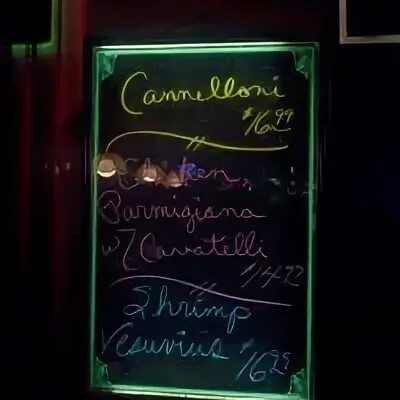 Cannelloni
$16.99
Chicken
Parmigiana
w/ Cavatelli
Shrimp
Vesuvius